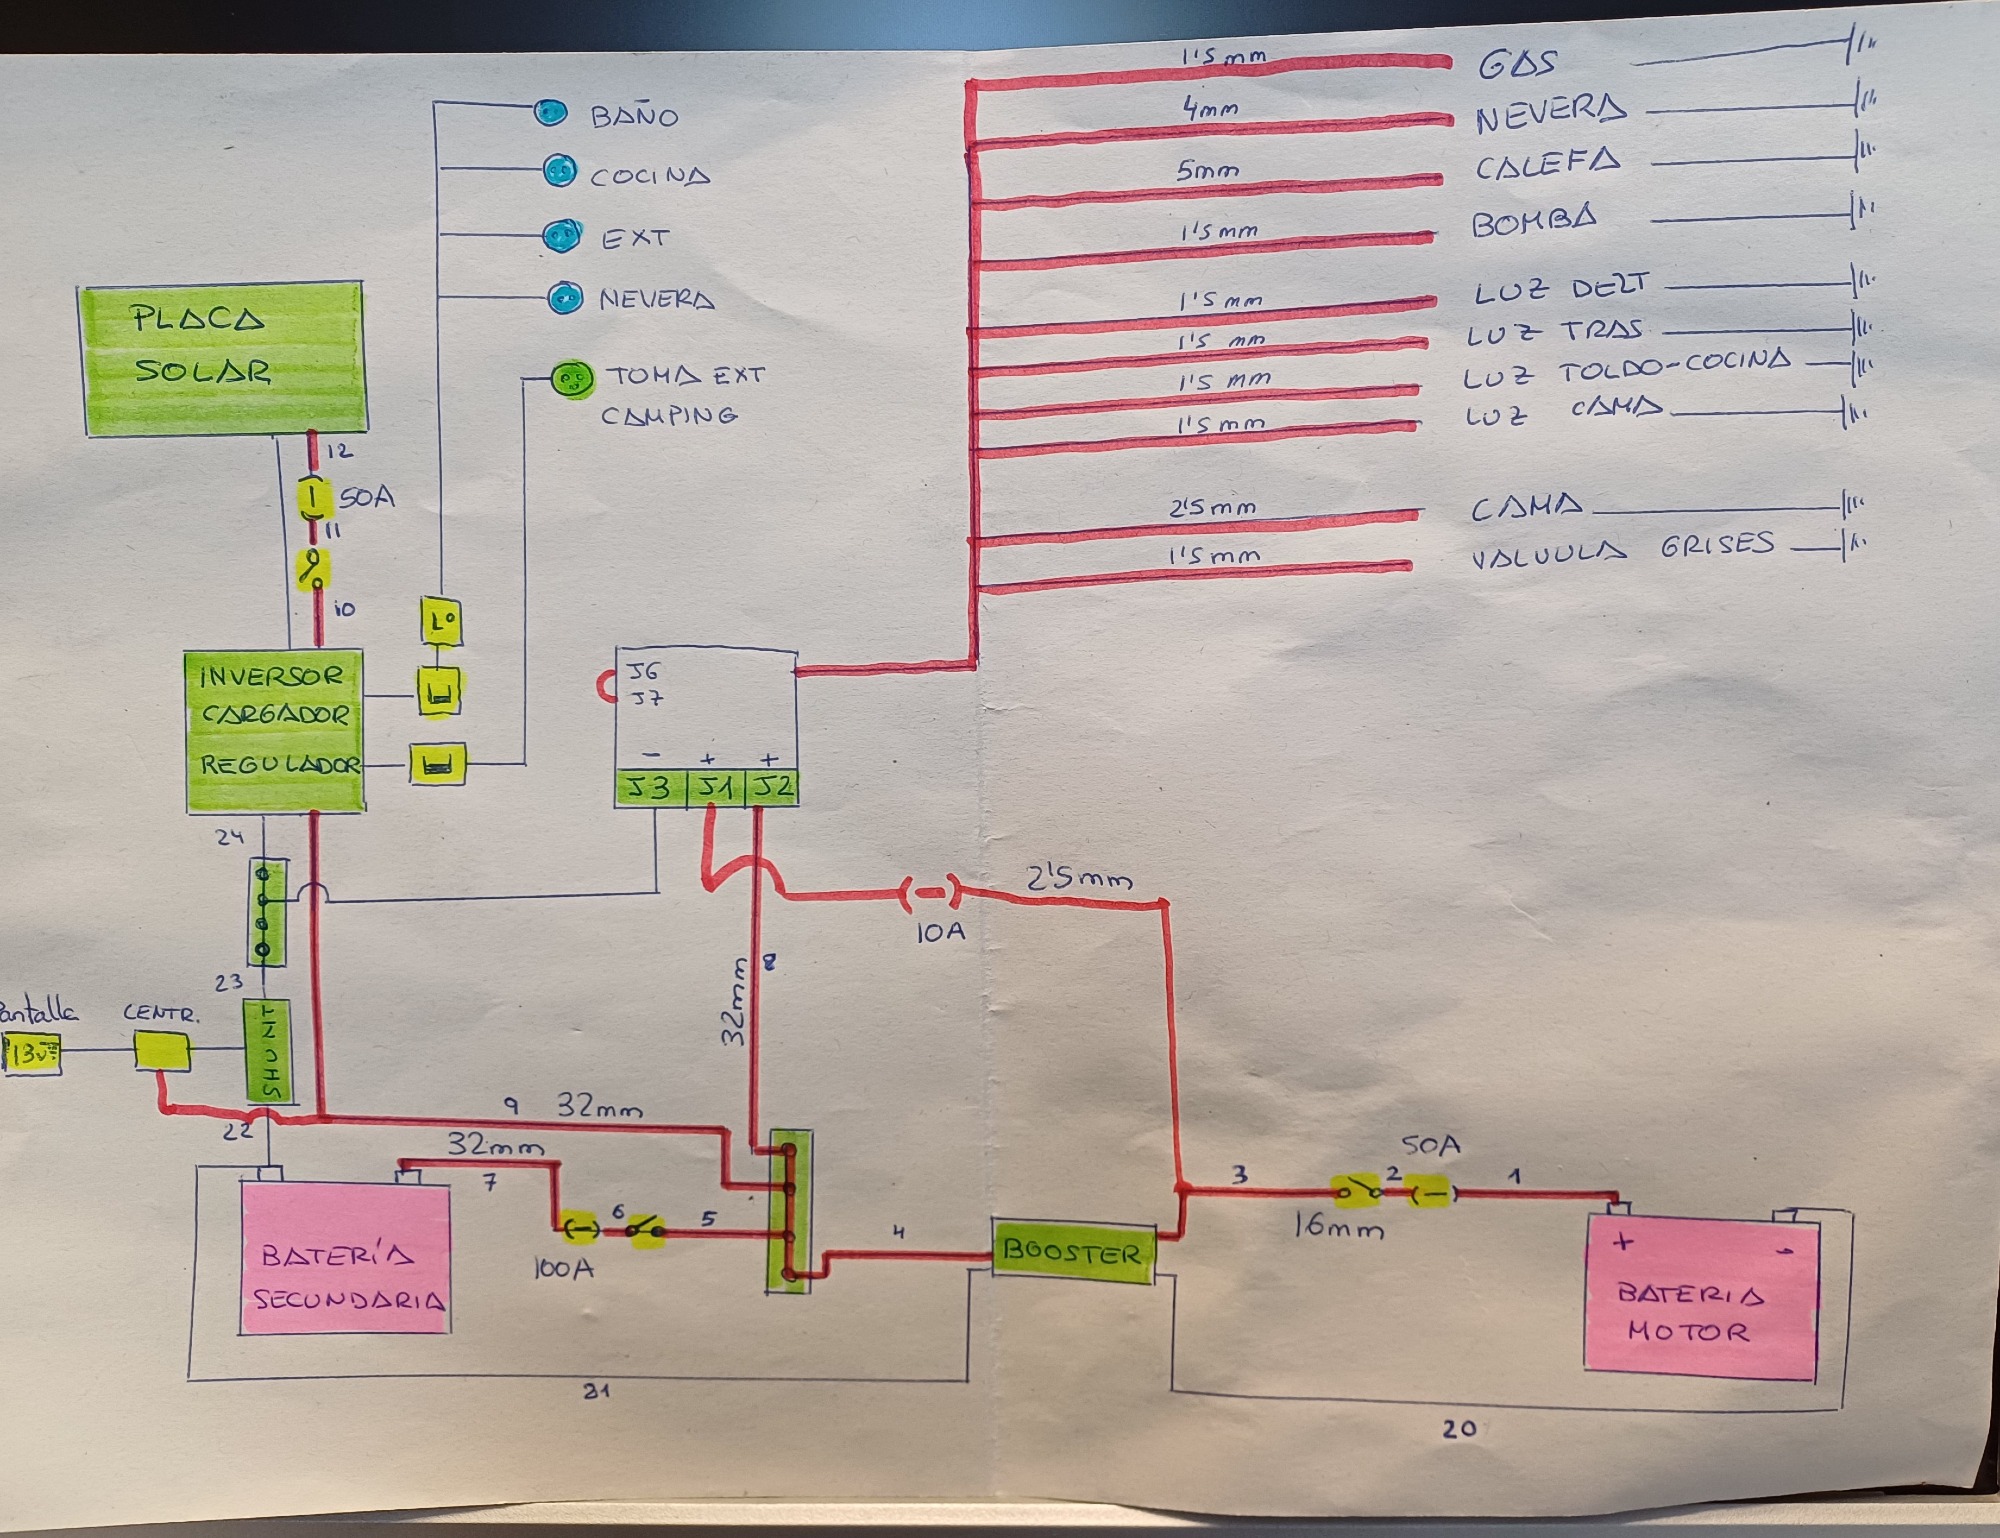 1'5mm GAS
4mm NEVERA
5mm CALEFA
1'5mm BOMBA
1'5mm LUZ DELT
1'5 mm LUZ TRAS
1'5 mm LUZ TOLDO-COCINA
1'5mm LUZ CAMA
2'5mm CAMA
1'5mm VALVULA GRISES
BAÑO
COCINA
EXT
NEVERA
TOMA EXT
CAMPING
PLACA
SOLAR
12
50A
11
10
L°
INVERSOR
CARGADOR
REGULADOR
J6
J7
- + +
J3 J1 J2
24
23
10A
2'5mm
32mm
8
Pantalla
13v
CENTR.
SHUNT
22
9 32mm
32mm
7
6
5
100A
4
BOOSTER
3
2
50A
1
16mm
BATERÍA
SECUNDARIA
+ -
BATERIA
MOTOR
21
20